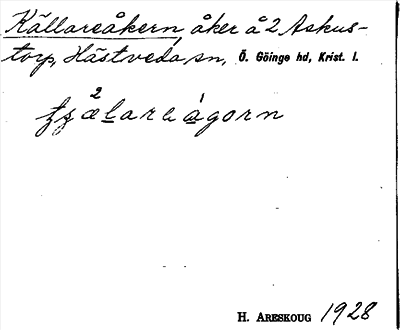 Källareåkern, åker å 2 Askus-
torp, Hästveda sn, Ö. Göinge hd, Krist. l.
H. ARESKOUG 1928